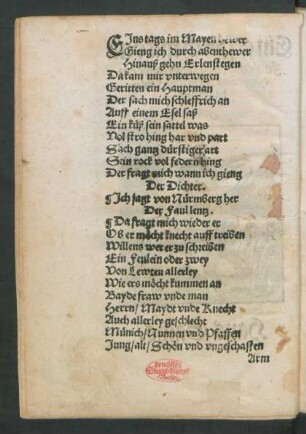 EIns tags im Mayen hewer
Gieng ich durch abenthewer
Hinauß gehn Erlenstegen
Da kam mir vnterwegen
Geritten ein Hauptman
Der sach mich schleffrich an
Auff einem Esel saß
Ein küß sein sattel was
Vol stro hing har vnd part
Sach gantz dürstiger art
Sein rock vol federn hing
Der fragt mich wann ich gieng
Der Dichter.
¶Ich sagt von Nürmberg her
Der Faullentz.
¶Da fragt mich wieder er
Ob er möcht knecht auff treiben
Willens wer er zu schreiben
Ein Fenlein oder zwey
Von Lewten allerley
Wie ers möcht kummen an
Bayde fraw vnde man
Herrn/ Maydt vnde Knecht
Auch allerley geschlecht
Münich/ Nunnen vnd Pfaffen
Jung/ alt/ Schön vnd vngeschaffen
Arm